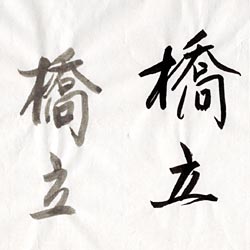 橋立
橋立